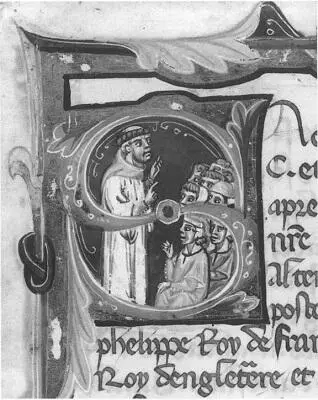 C. et
apre
nr̃e
Al te
poste
phelippe Roy de fran
Roy dengletẽre et